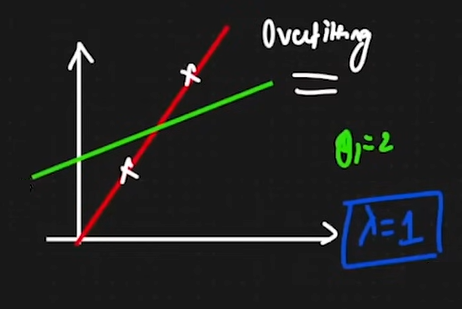 Overfitting
θ₁=2
λ=1